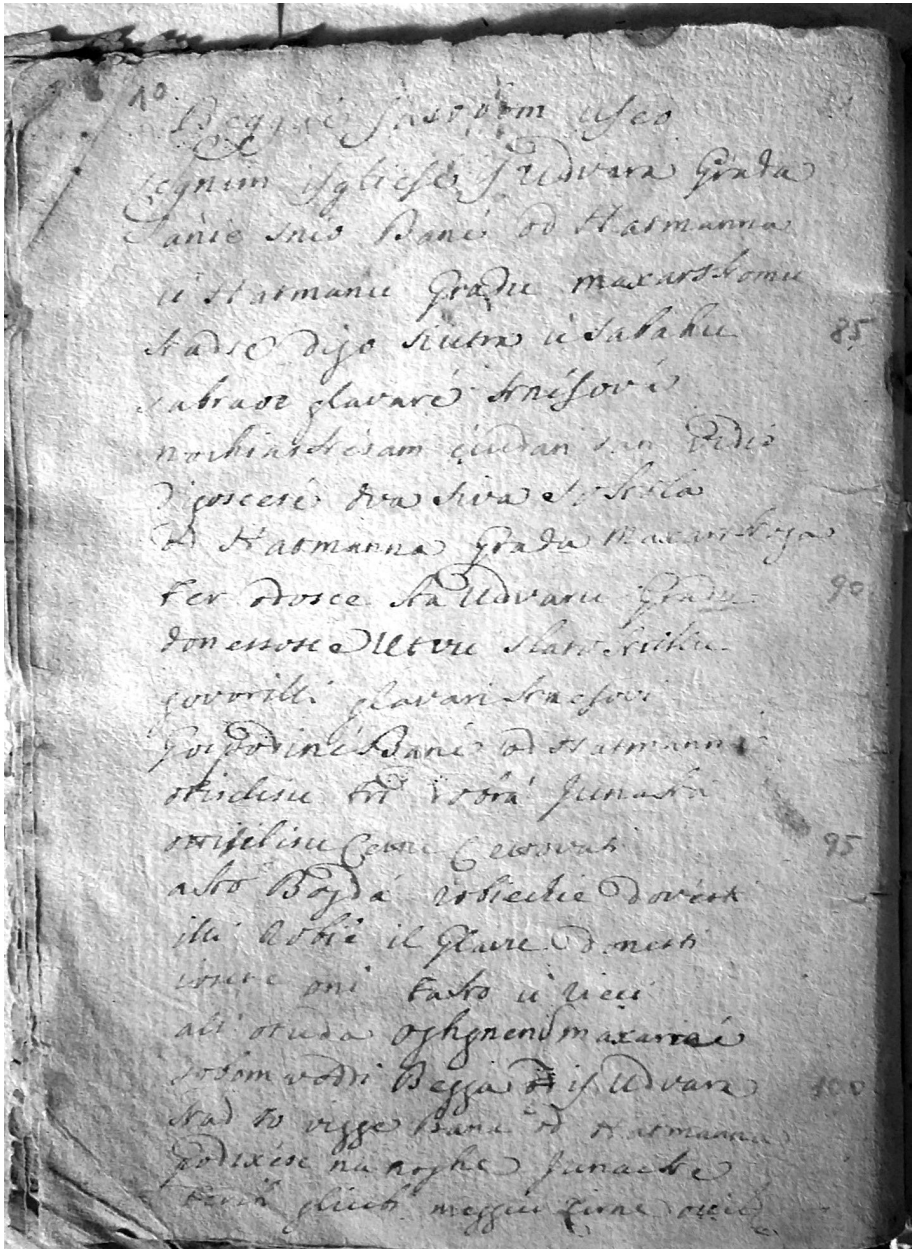 10
sobom useo
isgliese is Udvara Grada
snio Bane od Hatmanna
u Hatmanu Gradu maxarskomu
kadse dijo siutra u sabahu 85
sabraoe glavare knesove
nochinskisam ciudan san vidio
digoscese dva siva sokola
od Hatmanna Grada maxarskoga
ter odosce ka Udvaru Gradu 90
donessosce Utvu slatokrillu
govorilli glavari knesovi
Gospodine Bane od Hatmanna
otislisu tri dobra Junaka
otislisu Cetne Cetovati 95
ako Bogda robiechie dovesti
illi Robie il Glave donesti
oni tako u rieci
ali otuda oghgnenu maxarie
sobom voddi Begga is Udvara 100
Kad to vigge Bane od Hatmanna
podixese na noghe Junacke
terih gliubi meggiu cirne occi